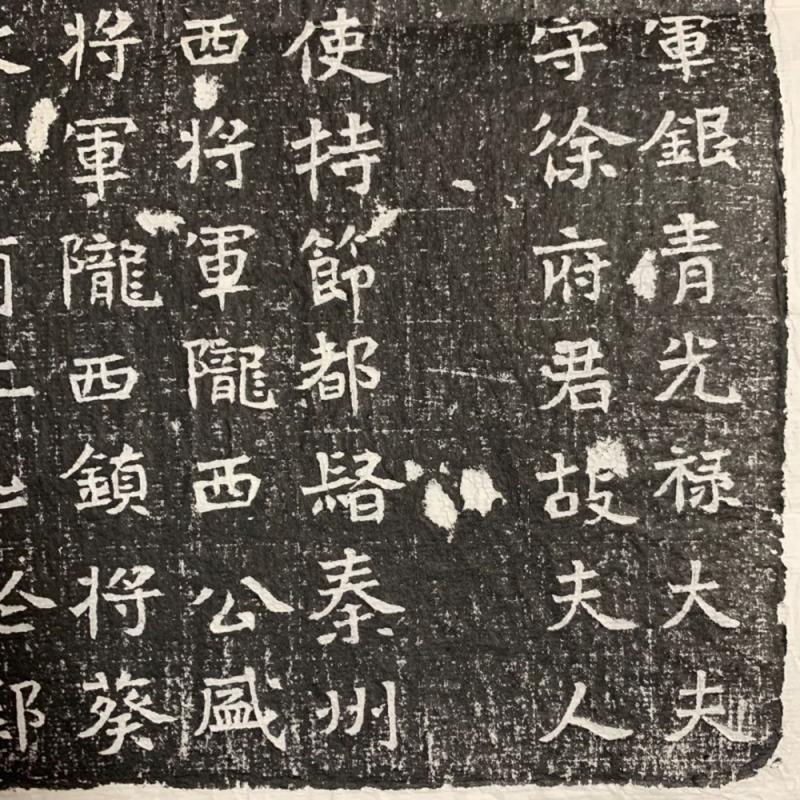 軍銀青光禄大夫
守徐府君故夫人
使持節都督秦州
西将軍隴西公盛
将軍隴西鎮将葵